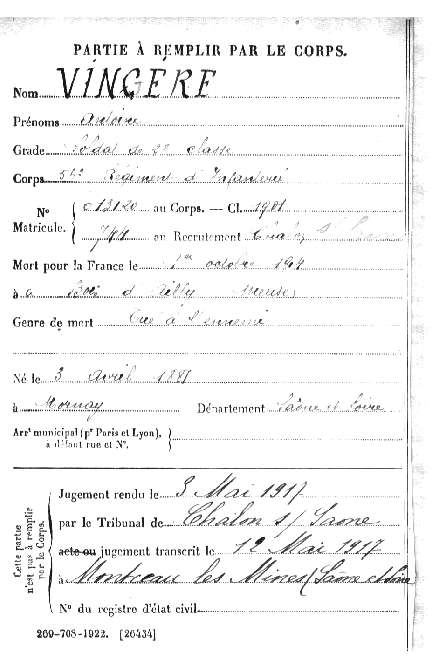 PARTIE À REMPLIR PAR LE CORPS.
Nom VINGERE
Prénoms Antoine
Grade Soldat de 2e classe
Corps Régiment d'Infanterie
No Matricule. c 13120 au Corps. — Cl. 1901
au Recutement Chalon s/ Saone
Mort pour la France le 1er octobre 1914
à Bois d'Ailly Meuse
Genre de mort Tué à l'ennemi
Né le 3 Avril 1881
à Mornay Département Saône et Loire
Arrt municipal (pr Paris et Lyon), à défaut rue et No.
Cette partie n'est pas à remplir par le Corps.
Jugement rendu le 3 Mai 1917
par le Tribunal de Chalon s/ Saone
acte ou jugement transcrit le 12 Mai 1917
à Montceau les Mines (Saône et Loire
No du registre d'état civil
269-708-1922. [26434]